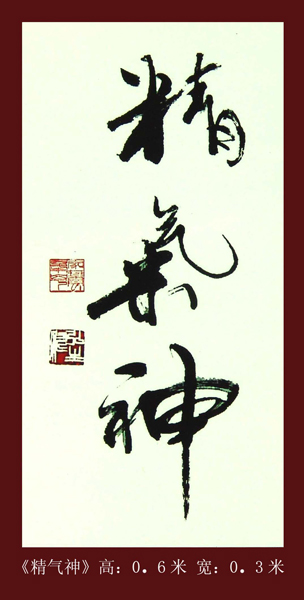 精
氣
神
《精气神》高：0.6米 宽：0.3米